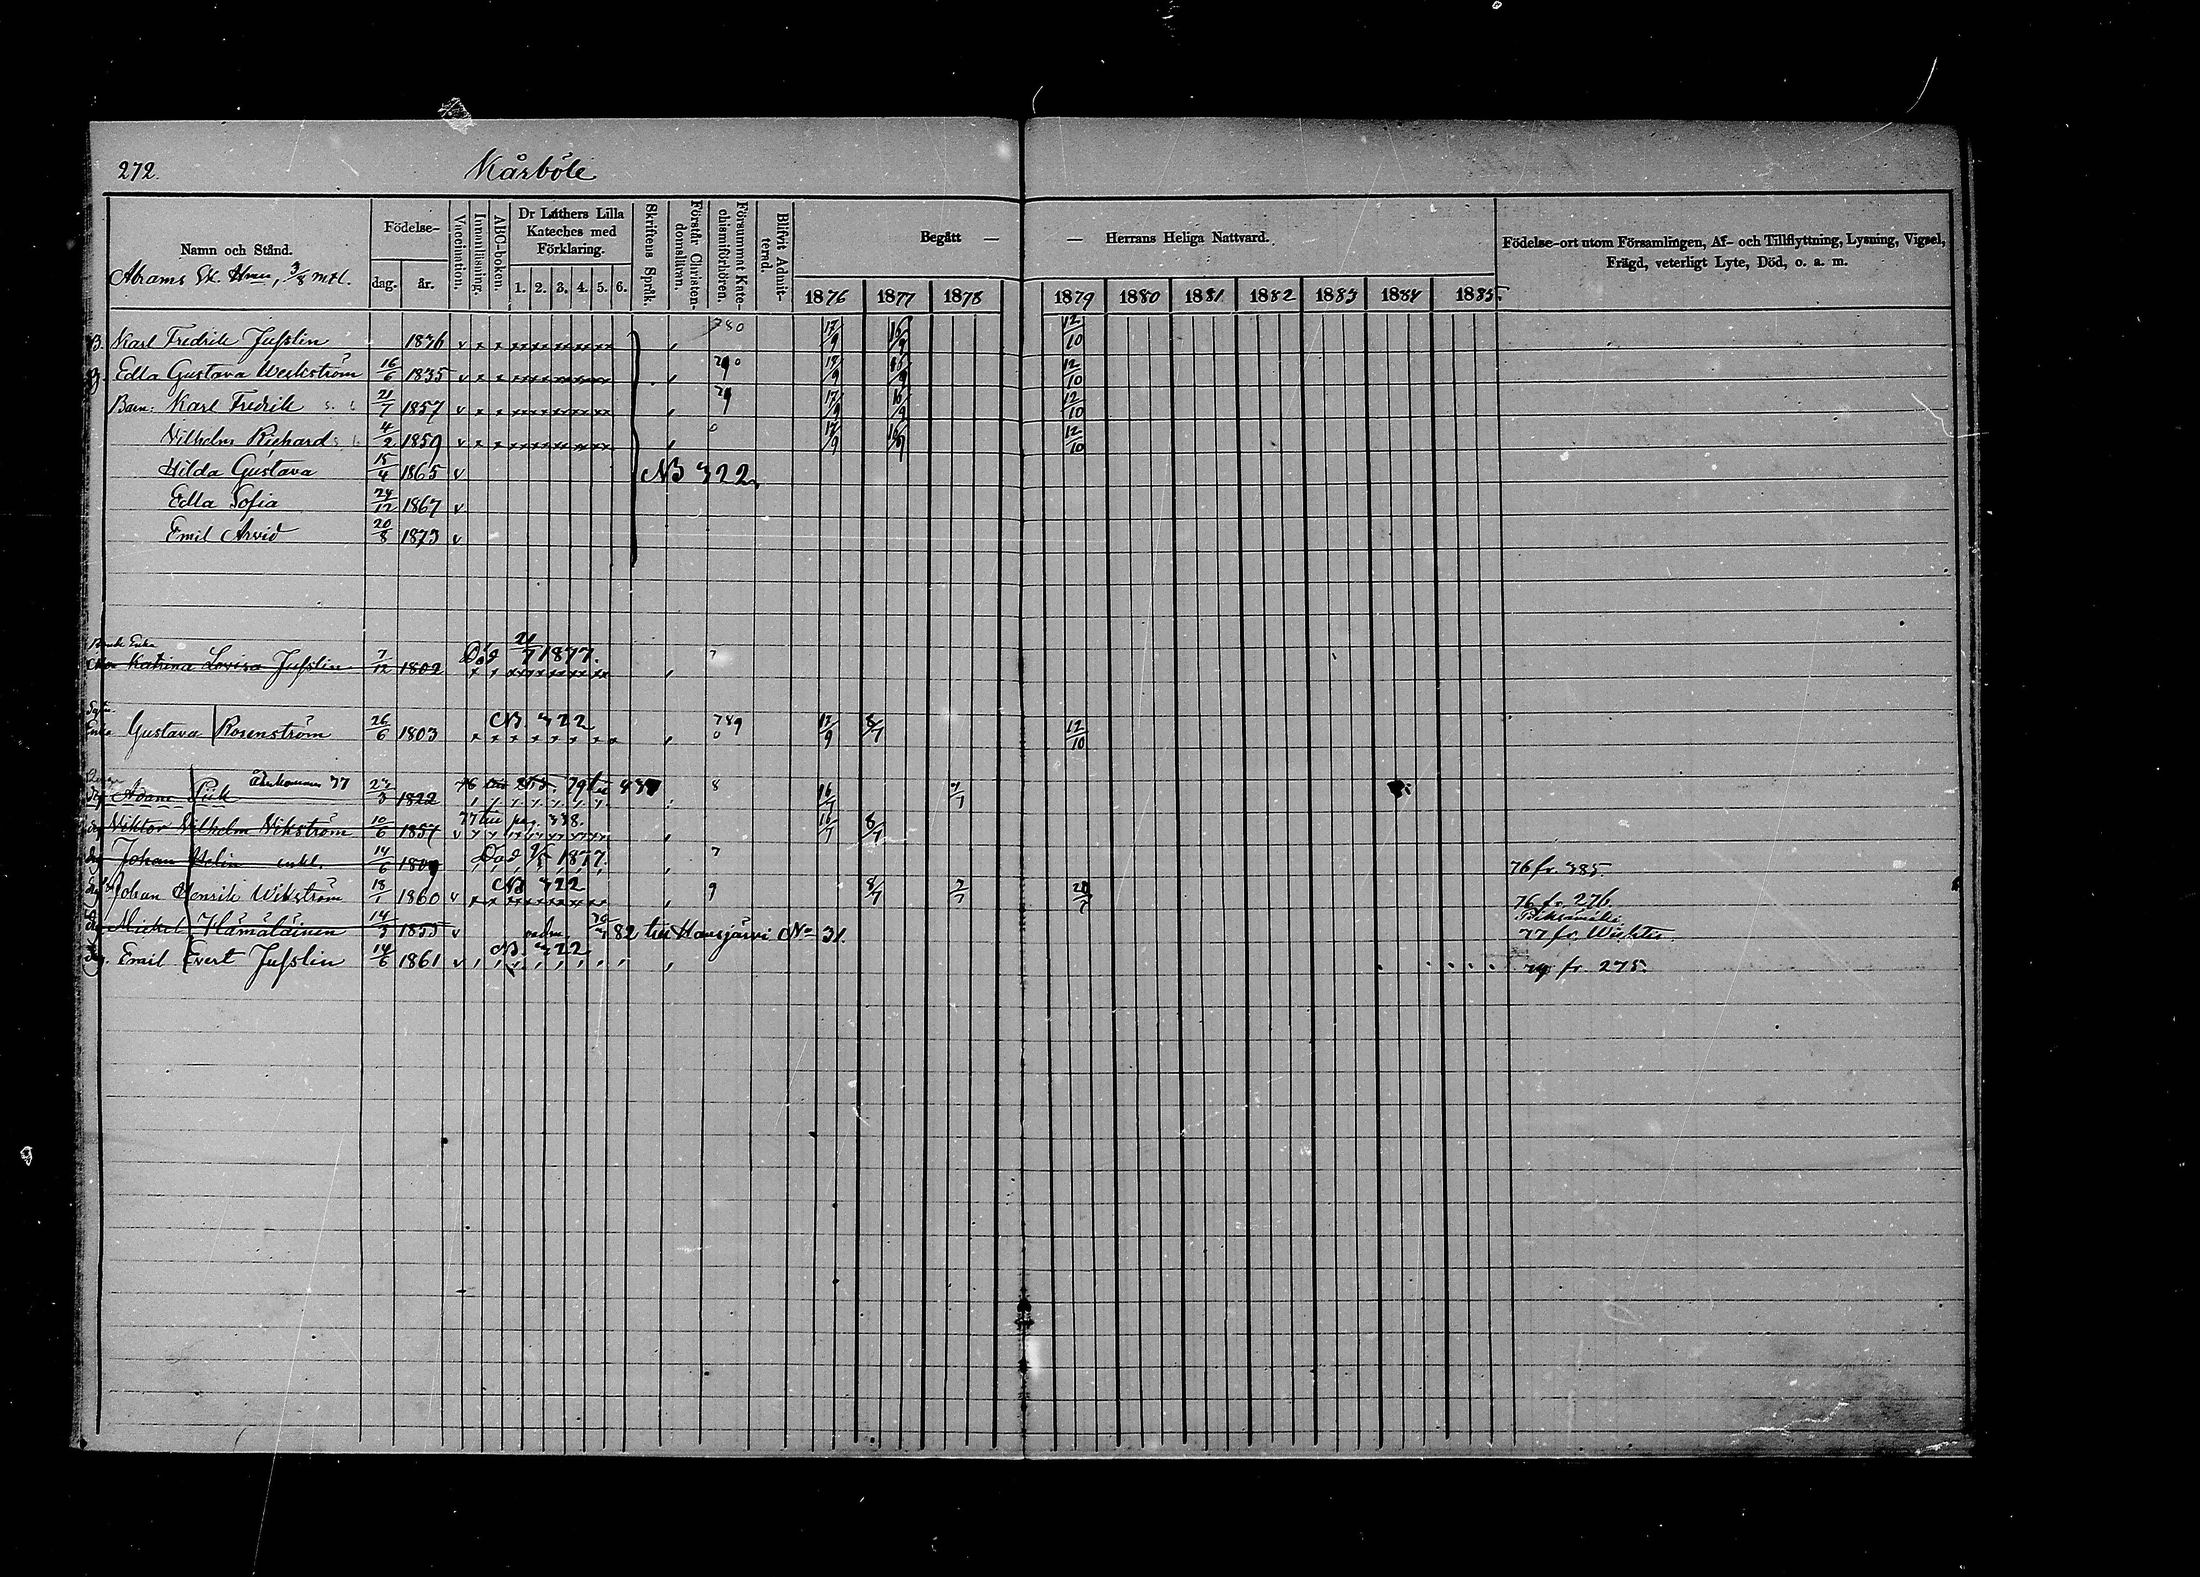 272.
Kårböle
Namn och Stånd.
Födelse-
dag.
år.
Vaccination.
Innanläsning.
ABC-boken.
Dr Luthers Lilla
Kateches med
Förklaring.
1. 2. 3. 4. 5. 6.
Skriftens Språk.
Förstår Christen-
domsläran.
Försummat Kate-
chismiförhören.
Blifvit Admit-
terad.
Begått —
— Herrans Heliga Nattvard.
1876 1877 1878 1879 1880 1881 1882 1883 1884 1885.
Födelse-ort utom Församlingen, Af- och Tillflyttning, Lysning, Vigsel,
Frägd, veterligt Lyte, Död, o. a. m.
Abrams 3/8 mtl.
B. Karl Fredrik Jusslin 1836 v x x 780 17/9 12/10
Edla Gustava Weckström 16/6 1835 v x x 12/10
Barn: Karl Fredrik 21/7 1857 v x x 79 17/9 12/10
Vilhelm Richard 4/2 1859 v x x 17/9 12/10
Hilda Gustava 15/4 1865 v NB 322.
Edla Sofia 24/12 1867 v
Emil Arvid 20/8 1873 v
Enka
Katrina Lovisa Jusslin 7/12 1802 Död 21/7 1877. 7
Enka Gustava Rosenström 26/6 1803 NB 322 789 17/9 8/7 12/10
Adam återkommen 77 1822 76 79 till 8 16/7 7/7
Viktor Vilhelm Vikström 10/6 1857 v 77 till pag. 338. 16/7 8/7
Johan 14/6 1809 Död 1877. 7 76 fr. 385.
Johan Henrik Wikström 18/1 1860 v NB 322 9 8/7 7/7 76 fr. 276.
Mickel Hämäläinen 14/3 1855 v 82 till Hausjärvi No 31.
77 fr. Wichtis.
Emil Evert Jusslin 14/6 1861 v NB. 322 79 fr. 275.